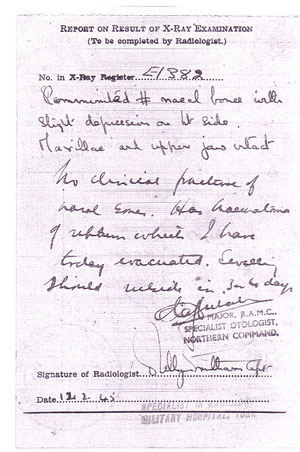 REPORT ON RESULT OF X-RAY EXAMINATION
(To be completed by Radiologist.)
No. in X-Ray Register E1382
Comminuted # nasal bones with
slight depression on lt side.
Maxillae and upper jaw intact
No clinical fracture of
nasal bones. Has haematoma
of septum which I have
today evacuated. Swelling
should subside in 3 to 4 days
MAJOR, R.A.M.C.,
SPECIALIST OTOLOGIST,
NORTHERN COMMAND.
Signature of Radiologist Capt
Date 12.2.45
SPECIALIST IN
MILITARY HOSPITAL, YORK